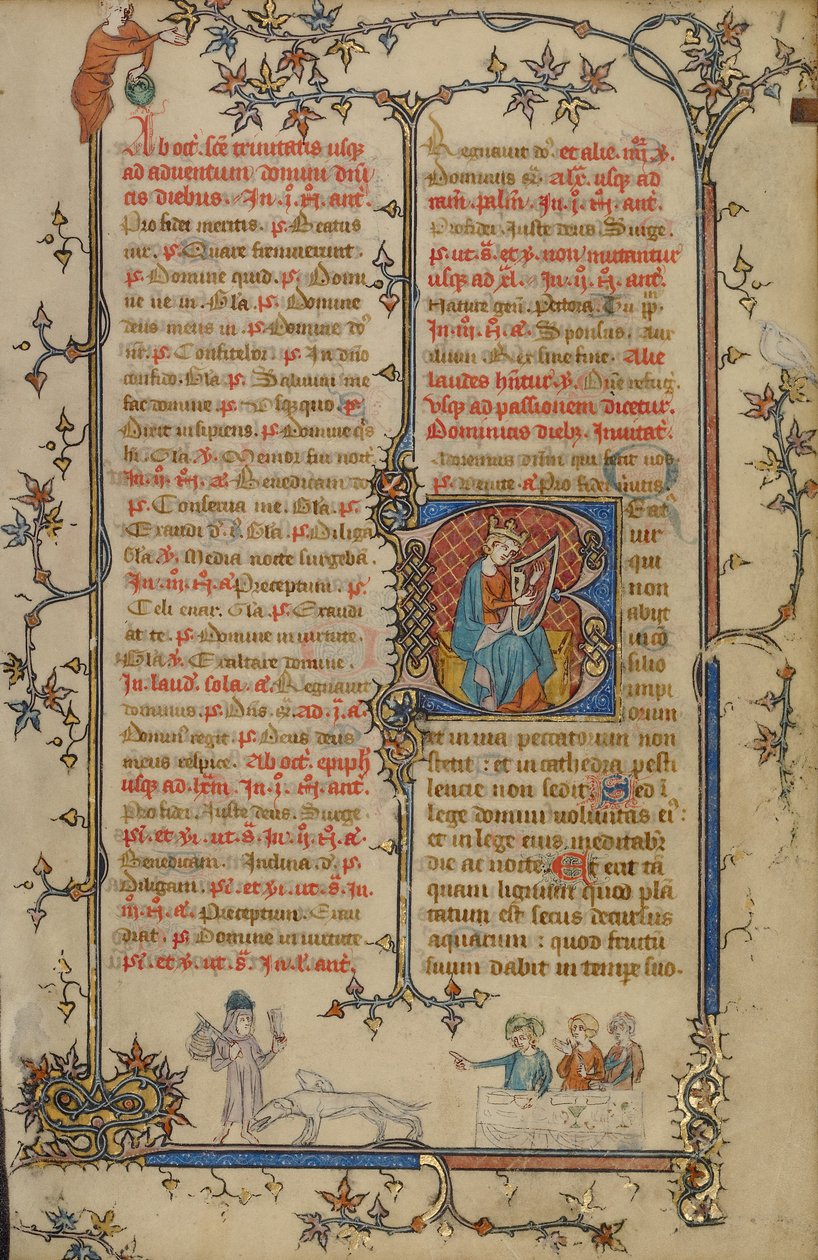 Ab oct̄. sc̄e trinitatis usq̄
ad adventum domini dn̄i
cis diebus. In. i. N̄. ant̄.
Pro fidei meritis. ps. Beatus
uir. ps. Quare fremuerunt.
ps. Domine quid. ps. Domi
ne ne in. Gl̄a. ps. Domine
deus meus in. ps. Domine do᾿
nr̄. ps. Confitebor. ps. In dn̄o
confido. Gl̄a. ps. Saluum me
fac domine. ps. Vsq̄quo. ps.
Dixit insipiens. ps. Domine q̄s
hi. Gl̄a. v̄. Memor fui noct̄.
In. ii. N̄. a. Benedicam do
ps. Conserva me. Gl̄a. ps.
Exaudi d. i. Gl̄a. ps. Diliga
Gl̄a. v̄. Media nocte surgebā.
In. iii. N̄. a. Preceptum. ps.
Celi enar. Gl̄a. ps. Exaudi
at te. ps. Domine in uirtute.
Gl̄a. v̄. Exaltare domine.
In laud᾿. sola. a. Regnauit
dominus. ps. Dn̄s. Ad. i. a.
Domin᾿ regit. ps. Deus deus
meus respice. Ab oct̄. epiph
usq̄ ad lxx̄m. In. i. N̄. ant̄.
Pro fidei. Iuste deus. Surge.
ps. et v̄. ut. s̄. In. ii. N̄. a.
Benedicam. Inclina. d. ps.
Diligam. ps. et v̄. ut. s̄. In.
iii. N̄. a. Preceptum. Exau
diat. ps. Domine in uirtute
ps. et v̄. ut. s̄. In. l. ant̄.
Regnauit do᾿. et alie. iiii. v̄.
Dominus. usq̄ ad
ram̄. palm̄. In. i. N̄. ant̄.
Pro fidei. Iuste deus. Surge.
ps. ut. s̄. et v̄. non mutantur
usq̄ ad xl. In. ii. N̄. ant̄.
Nature gen̄. Pectora. Tu
In. iii. N̄. a. Sponsus. Aux
ilium. Rex sine fine. Alie
laudes hn̄tur. v̄. Dn̄e refuḡ.
Vsq̄ ad passionem dicetur.
Dominicis dieb᾿. Inuitat̄.
Adoremus dn̄m qui fecit nos
ps. Venite. a. Pro fidei m̄itis.
B Eat᾿
uir
qui
non
abijt
in cō
silio
impi
orum
et in uia peccatorum non
stetit : et in cathedra pesti
lencie non sedit. Sed ī
lege domini uoluntas ei᾿:
et in lege eius meditabr̄
die ac nocte. Et erit tā
quam lignum quod plā
tatum est secus decursus
aquarum : quod fructū
suum dabit in tempe suo.